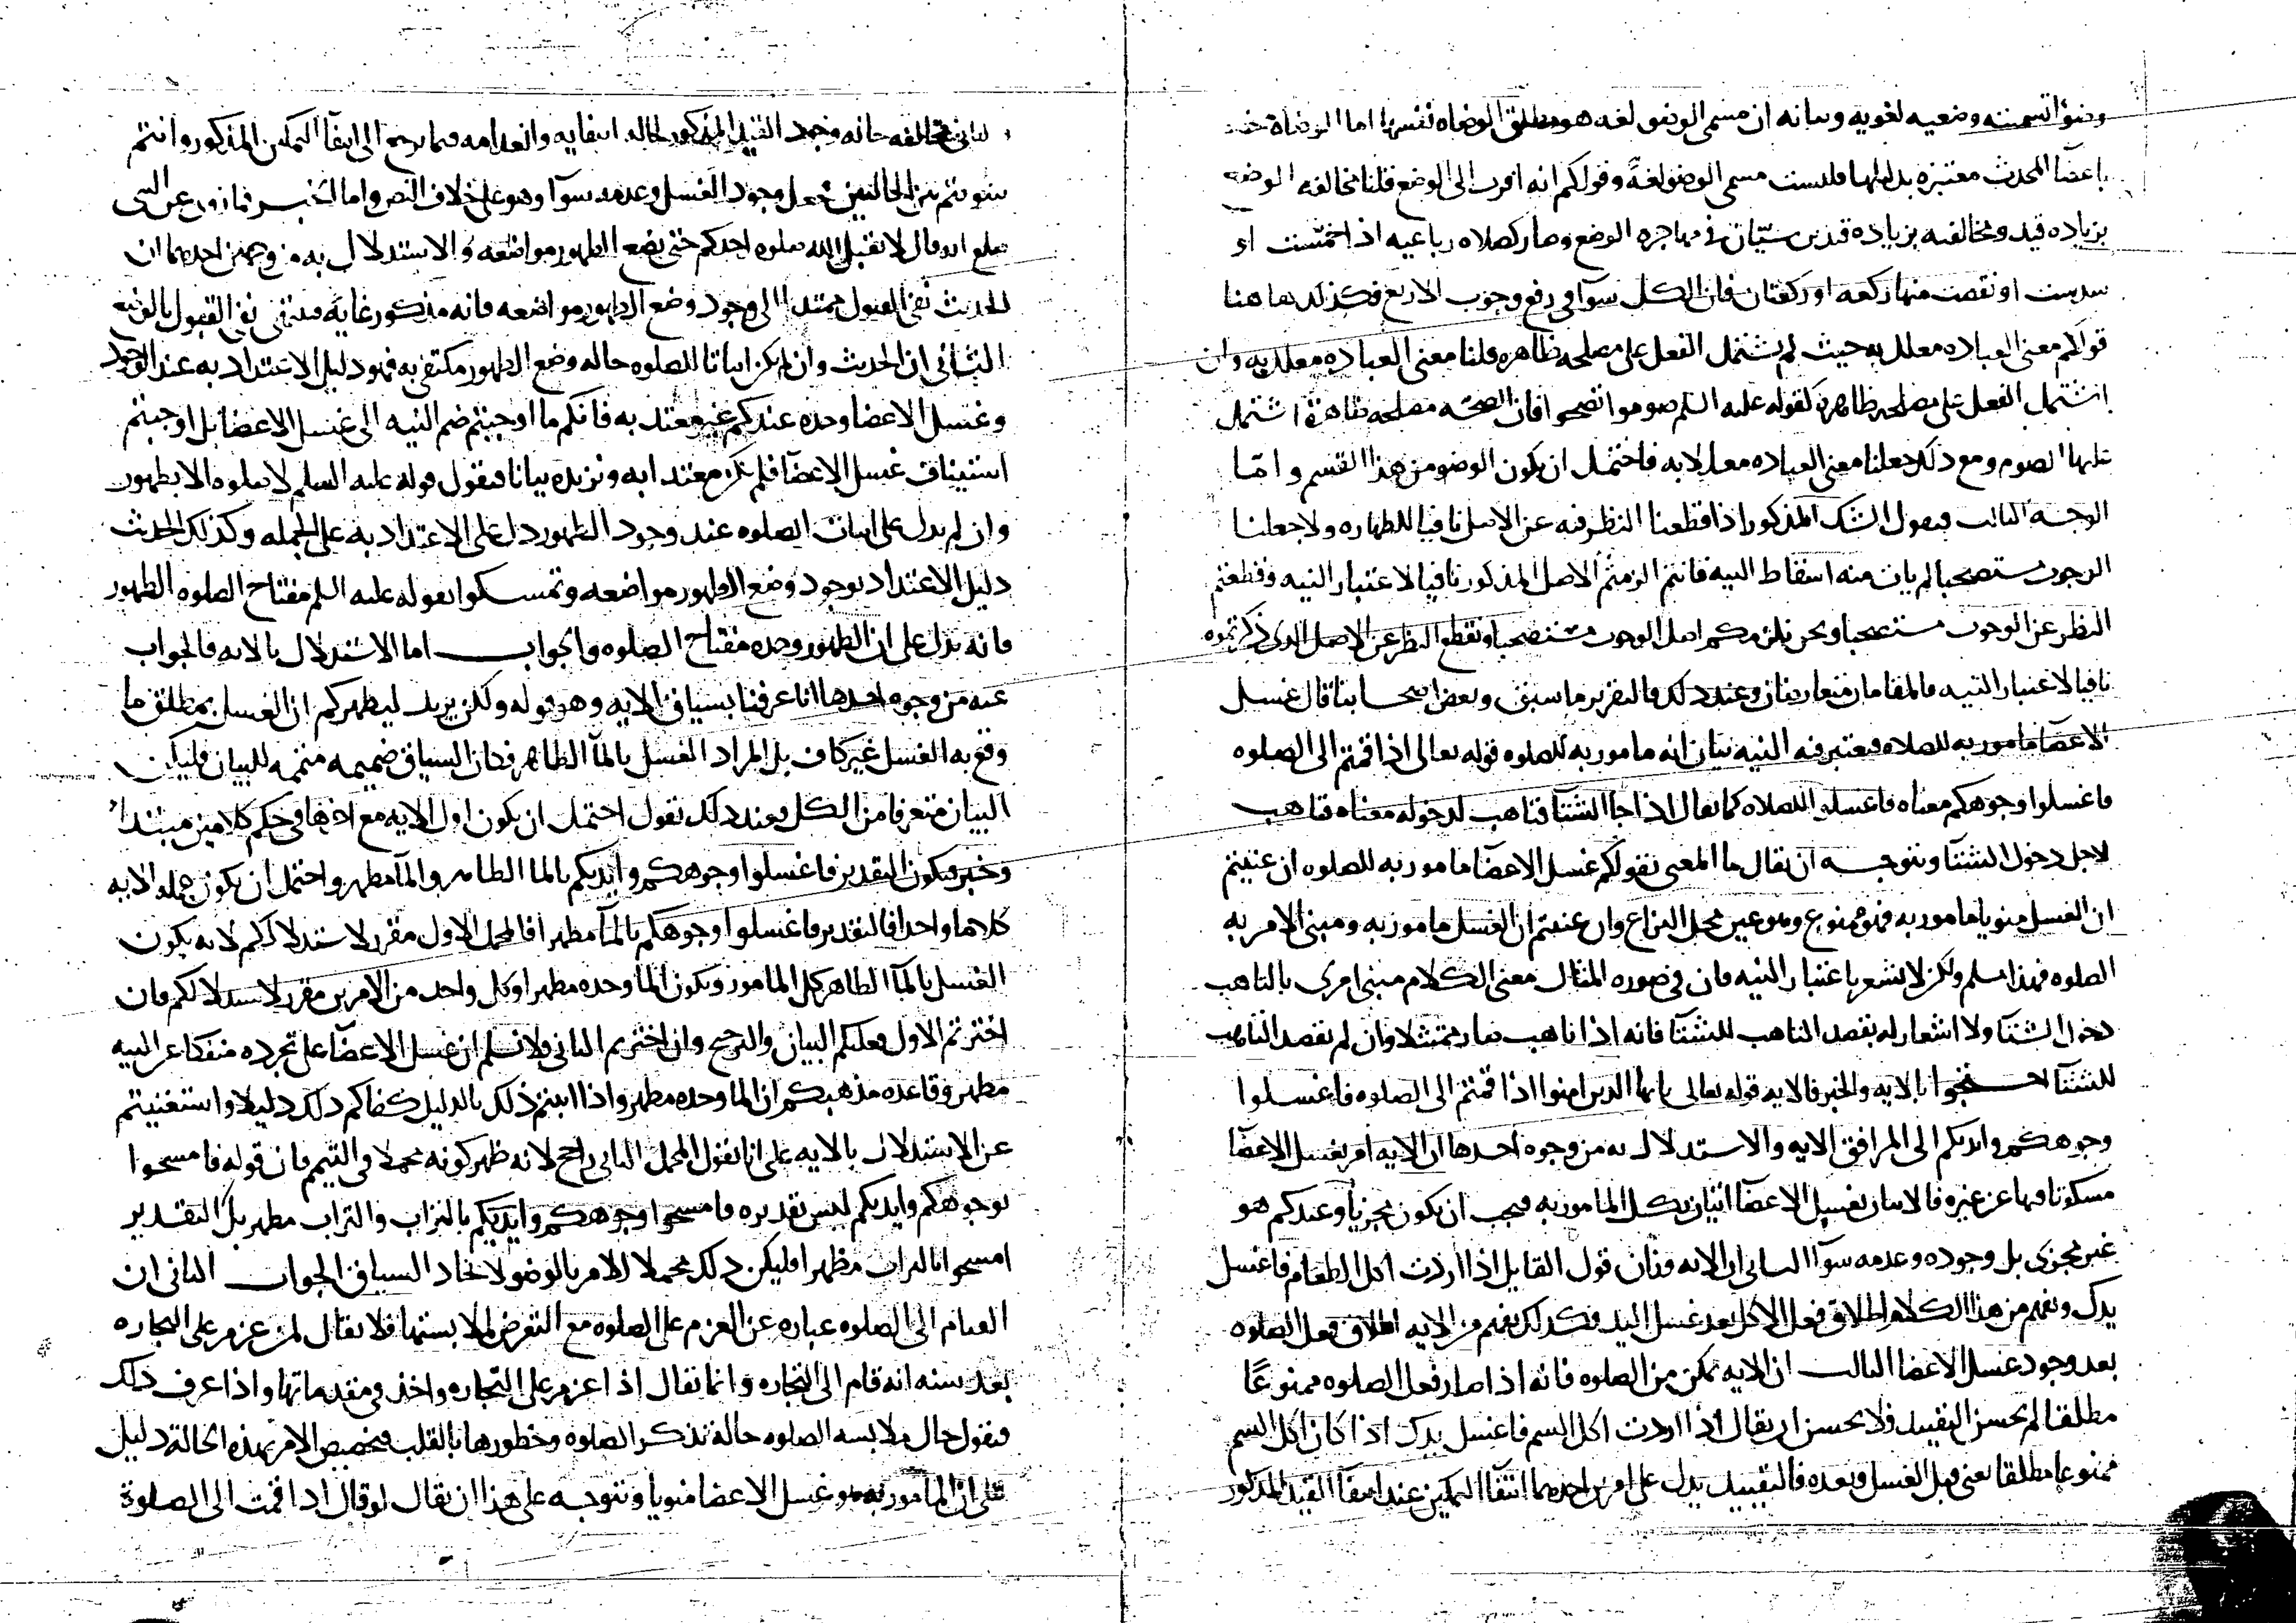 وضؤا تسميته وضعيه لغويه وبيانه ان مسمى الوضوء لغه هو مطلق الوضاه نفسها اما الوضاة
باعضآ المحدث معتبره بدلها فليست مسمى الوضو لغةً وقولكم انه اقرب الى الوضع قلنا مخالفه الوضع
بزياده قيد ومخالفته بزياده قيدين سيّان في مهاجره الوضع وصار كصلاه رباعيه اذا خمّست او
سدست او نقصت منها ركعه او ركعتان فان الكل سوآ في رفع وجوب الاربع فكذلك هاهنا
قولكم معنى العباده معلل به حيث لم يشتمل الفعل على مصلحه ظاهره قلنا معنى العباده معلل به وان
اشتمل الفعل على مصلحه ظاهره كقوله عليه السلم صوموا تصحوا فان الصحّه مصلحه ظاهرة اشتمل
عليها الصوم ومع ذلك جعلنا معنى العباده معللا به فاحتمل ان يكون الوضو من هذا القسم وامّا
الوجه الثالث فنقول الشك المذكور اذا قطعنا النظر فيه عن الاصل نافيا للطهاره ولا جعلنا
الوجوب مستصحبا لم يات منه اسقاط النيه فانتم الزمتم الاصل المذكور نافيا لاعتبار النيه وقطعتم
النظر عن الوجوب مستصحبا ونحن نلزمكم اصل الوجوب مستصحبا ونقطع النظر عن الاصل الذى ذكرتموه
نافيا لاعتبار النيه فالمقامان متعارضان وعند ذلك فالتقرير ما سبق وبعض اصحابنا قال غسل
الاعضآ مامور به للصلاه فيعتبر فيه النيه بيان انه مامور به للصلوه قوله تعالى اذا قمتم الى الصلوه
فاغسلوا وجوهكم معناه فاغسلوا للصلاه كما يقال اذا جا الشتآ فتاهب لدخوله معناه فتاهب
لاجل دخول الشتآ ويتوجه ان يقال ما المعنى بقولكم غسل الاعضآ مامور به للصلوه ان عنيتم
ان الغسل منويا مامور به فهو ممنوع وهو عين محل النزاع وان عنيتم ان الغسل مامور به ومبنى الامر به
الصلوه فهذا مسلم ولكن لا يشعر باعتبار النيه فان في صوره المثال معنى الكلام مبنى امرى بالتاهب
دخول الشتآ ولا اشعار له بقصد التاهب للشتآ فانه اذا تاهب صار ممتثلا وان لم يقصد التاهب
للشتآ احتجوا بالايه والخبر فالايه قوله تعالى يايها الذين امنوا اذا قمتم الى الصلوه فاغسلوا
وجوهكم وايديكم الى المرافق الايه والاستدلال به من وجوه احدها ان الايه امر بغسل الاعضآ
مسكوتا فيها عن غيره فالاتيان بغسل الاعضآ اتيان بكل المامور به فيجب ان يكون مجزيا وعندكم هو
غير مجزى بل وجوده وعدمه سوآ الثاني ان الايه وزان قول القايل اذا اردت اكل الطعام فاغسل
يدك ويفهم من هذا الكلام اطلاق فعل الاكل بعد غسل اليد فكذلك يفهم من الايه اطلاق فعل الصلوه
بعد وجود غسل الاعضا الثالث ان الايه تمكن من الصلوه فانه اذا صار فعل الصلوه ممنوعًا
مطلقا لم يحسن التقييد فلا يحسن ان يقال اذا اردت اكل السم فاغسل يدك اذا كان اكل السم
ممنوعا مطلقا يعنى قبل الغسل وبعده فالتقييد يدل على امرين احدهما انتفآ التمكين عند انتفآ القيد المذكور
الثاني مخالفه حاله وجود القيد المذكور لحاله انتفايه وانعدامه فيما يرجع الى انتفآ التمكين المذكور وانتم
سويتم بين الحالتين فجعل وجود الغسل وعدمه سوآ وهو على خلاف النص واما الخبر فما روى عن النبى
صلعم انه قال لا تقبل الله صلوه احدكم حتى يضع الطهور مواضعه والاستدلال به من وجهين احدهما ان
الحديث نفى القبول ممتدا الى وجود وضع الطهور مواضعه فانه مذكور غايه فينتفى نفى القبول بالوضع
الثاني ان الحديث وان لم يكن اثباتا للصلوه حاله وضع الطهور مكتفى به فهو دليل الاعتداد به عند الوجود
وغسل الاعضا وحده عندكم غير معتد به فانكم ما اوجبتم ضم النيه الى غسل الاعضا بل اوجبتم
استيناف غسل الاعضآ فلم يكن معتدا به ونزيده بيانا فنقول قوله عليه السلم لا صلوه الا بطهور
وان لم يدل على اثبات الصلوه عند وجود الطهور دل على الاعتداد به على الجمله وكذلك الحديث
دليل الاعتداد بوجود وضع الطهور مواضعه وتمسكوا بقوله عليه السلم مفتاح الصلوه الطهور
فانه يدل على ان الطهور وحده مفتاح الصلوه والجواب اما الاستدلال بالايه فالجواب
عنه من وجوه احدها انا عرفنا بسياق الايه وهو قوله ولكن يريد ليطهركم ان الغسل بمطلق ما
وقع به الغسل غير كاف بل المراد الغسل بالمآ الطاهر فكان السياق ضميمه متممه للبيان فليكن
البيان متعرفا من الكل وعند ذلك نقول احتمل ان يكون اول الايه مع اخرها في حكم كلامين مبتدا
وخبر فيكون التقدير فاغسلوا وجوهكم وايديكم بالما الطاهر والمآ مطهر واحتمل ان يكون جمله الايه
كلاما واحدا فالتقدير فاغسلوا وجوهكم بالمآ مطهرا فالمحمل الاول مقرر لاستدلالكم لانه يكون
الغسل بالمآ الطاهر كل المامور ويكون الما وحده مطهرا وكل واحد من الامرين مقرر لاستدلالكم فان
اخترتم الاول فعليكم البيان والترجيح وان اخترتم الثاني فلا نسلم ان غسل الاعضآ على تجرده منفكا عن النيه
مطهر وقاعده مذهبكم ان الما وحده مطهر واذا اثبتم ذلك بالدليل كفاكم ذلك دليلا واستغنيتم
عن الاستدلال بالايه على انا نقول المحمل الثاني راجح لانه ظهر كونه محملا في التيمم فان قوله فامسحوا
بوجوهكم وايديكم ليس تقديره فامسحوا وجوهكم وايديكم بالتراب والتراب مطهر بل التقدير
امسحوا بالتراب مطهرا فليكن ذلك محملا للامر بالوضو لاتحاد السياق الجواب الثاني ان
القيام الى الصلوه عباره عن العزم على الصلوه مع التعرض لملابستها فلا يقال لمن عزم على التجاره
بعد سنه انه قام الى التجاره وانما يقال اذا عزم على التجاره واخذ في مقدماتها واذا عرف ذلك
فنقول حال ملابسه الصلوه حالة تذكر الصلوه وخطورها بالقلب فتخصيص الامر بهذه الحالة دليل
على ان المامور به هو غسل الاعضا منويا ويتوجه على هذا ان يقال لو قال اذا قمت الى الصلوة